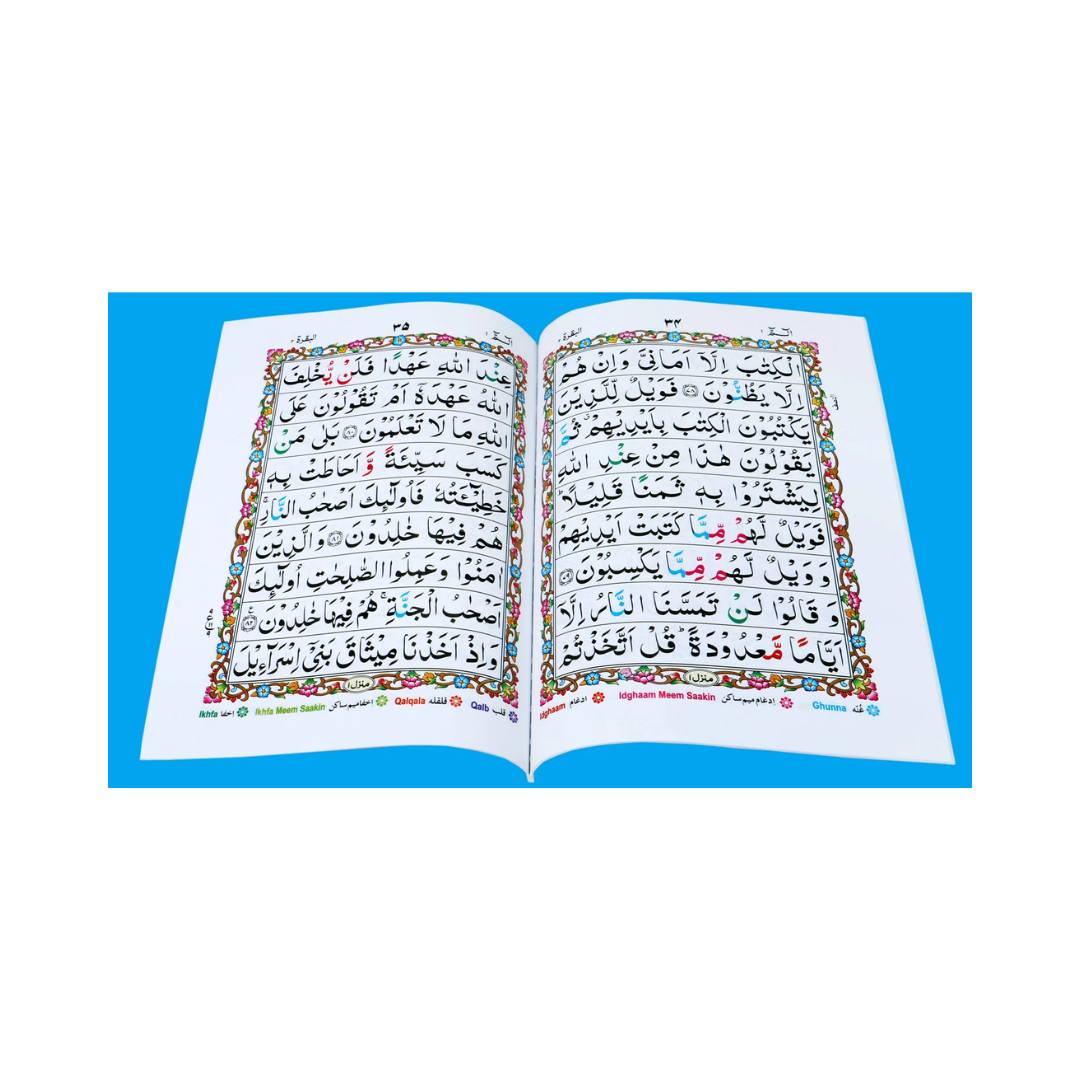 الٓمّٓ ١
٣٤
البقرة ٢
الْكِتٰبَ اِلَّاۤ اَمَانِیَّ وَاِنْ هُمْ
اِلَّا يَظُنُّوْنَ ۝٧٨ فَوَيْلٌ لِّلَّذِيْنَ
يَكْتُبُوْنَ الْكِتٰبَ بِاَيْدِيْهِمْ ۗ ثُمَّ
يَقُوْلُوْنَ هٰذَا مِنْ عِنْدِ اللّٰهِ
لِيَشْتَرُوْا بِهٖ ثَمَنًا قَلِيْلًا ؕ
فَوَيْلٌ لَّهُمْ مِّمَّا كَتَبَتْ اَيْدِيْهِمْ
وَ وَيْلٌ لَّهُمْ مِّمَّا يَكْسِبُوْنَ ۝٧٩
وَ قَالُوْا لَنْ تَمَسَّنَا النَّارُ اِلَّاۤ
اَيَّامًا مَّعْدُوْدَةً ؕ قُلْ اَتَّخَذْتُمْ
منزل ١
Ghunna غُنّه
Idghaam Meem Saakin اِدغام میم ساکن
Idghaam ادغام
الٓمّٓ ١
٣٥
البقرة ٢
عِنْدَ اللّٰهِ عَهْدًا فَلَنْ يُّخْلِفَ
اللّٰهُ عَهْدَهٗۤ اَمْ تَقُوْلُوْنَ عَلَى
اللّٰهِ مَا لَا تَعْلَمُوْنَ ۝٨٠ بَلٰى مَنْ
كَسَبَ سَيِّئَةً وَّ اَحَاطَتْ بِهٖ
خَطِيْٓئَتُهٗ فَاُولٰٓئِكَ اَصْحٰبُ النَّارِ ۚ
هُمْ فِيْهَا خٰلِدُوْنَ ۝٨١ وَالَّذِيْنَ
اٰمَنُوْا وَعَمِلُوا الصّٰلِحٰتِ اُولٰٓئِكَ
اَصْحٰبُ الْجَنَّةِ ۚ هُمْ فِيْهَا خٰلِدُوْنَ ۝٨٢
وَاِذْ اَخَذْنَا مِيْثَاقَ بَنِیْۤ اِسْرَآءِيْلَ
منزل ١
Qalb قلب
Qalqala قلقله
Ikhfa Meem Saakin اخفا میم ساکن
Ikhfa اخفا